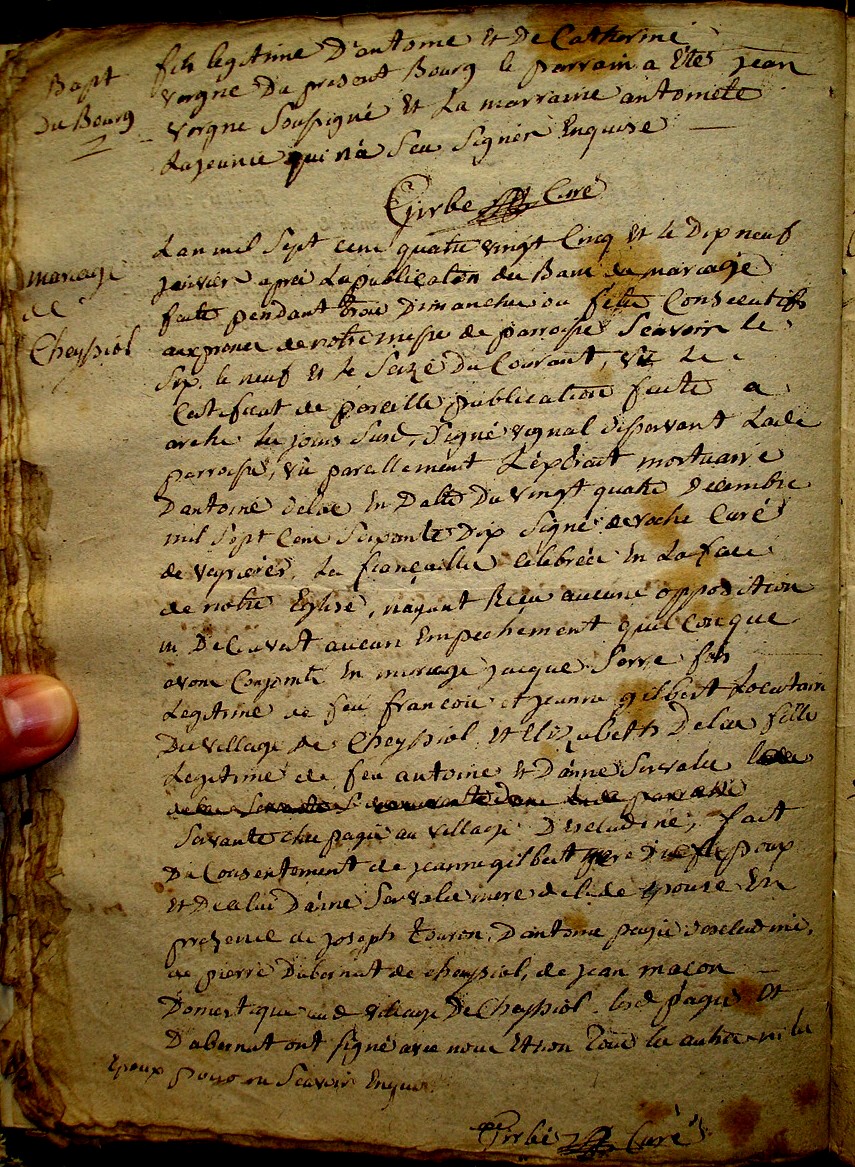 Bapt
Du Bourg
fils legitime D'antoine Et De Catherine
vergne Du present Bourg le parrain a Eté jean
vergne Soussigné Et La marraine antoinete
Lajeunie qui n'a Sceu Signer Enquise
Girbe Curé
mariage
de
Cheyssiol
Lan mil Sept cent quatre vingt Cinq Et le Dix neuf
janvier aprés La publication des Bans de mariage
faite pendant trois Dimanches ou fetes Consecutifs
aux prones de notre messe de parroisse Scavoir le
Six le neuf Et le Seize Du Courant, vû Le
Certificat de pareille publication faite a
les jours Susd. Signé vignal desservant Lade
parroisse, vû pareillement L'extrait mortuaire
D'antoine Delac En Datte Du vingt quatre Decembre
mil Sept Cent Soixante Dix Signé Curé
de veyrieres, La fiançailles Celebrée En La face
de notre Eglise, nayant Reçu aucune opposition
ni Decouvert aucun Empechement quel Conque
avons Conjoints En mariage jacque Serre fils
Legitime de feu francois et jeanne gilbert Locataire
Du village de Cheyssiol et Elizabeth Delac fille
Legitime de feu antoine Et D'anne
Servante ches pagis au village D'Escludine, fait
Du Consentement de jeanne gilbert mere Du epoux
Et De celui D'anne mere de lade Epouse En
presence de joseph Couron, D'antoine pagis
de pierre Dubernat de cheyssiol, de jean macon
Domestique aud village De Cheyssiol. lesd pagis Et
Dabernat ont signé avec nous Et non Les autres ni les
Epoux pour ne Scavoir Enquis
Girbe Curé